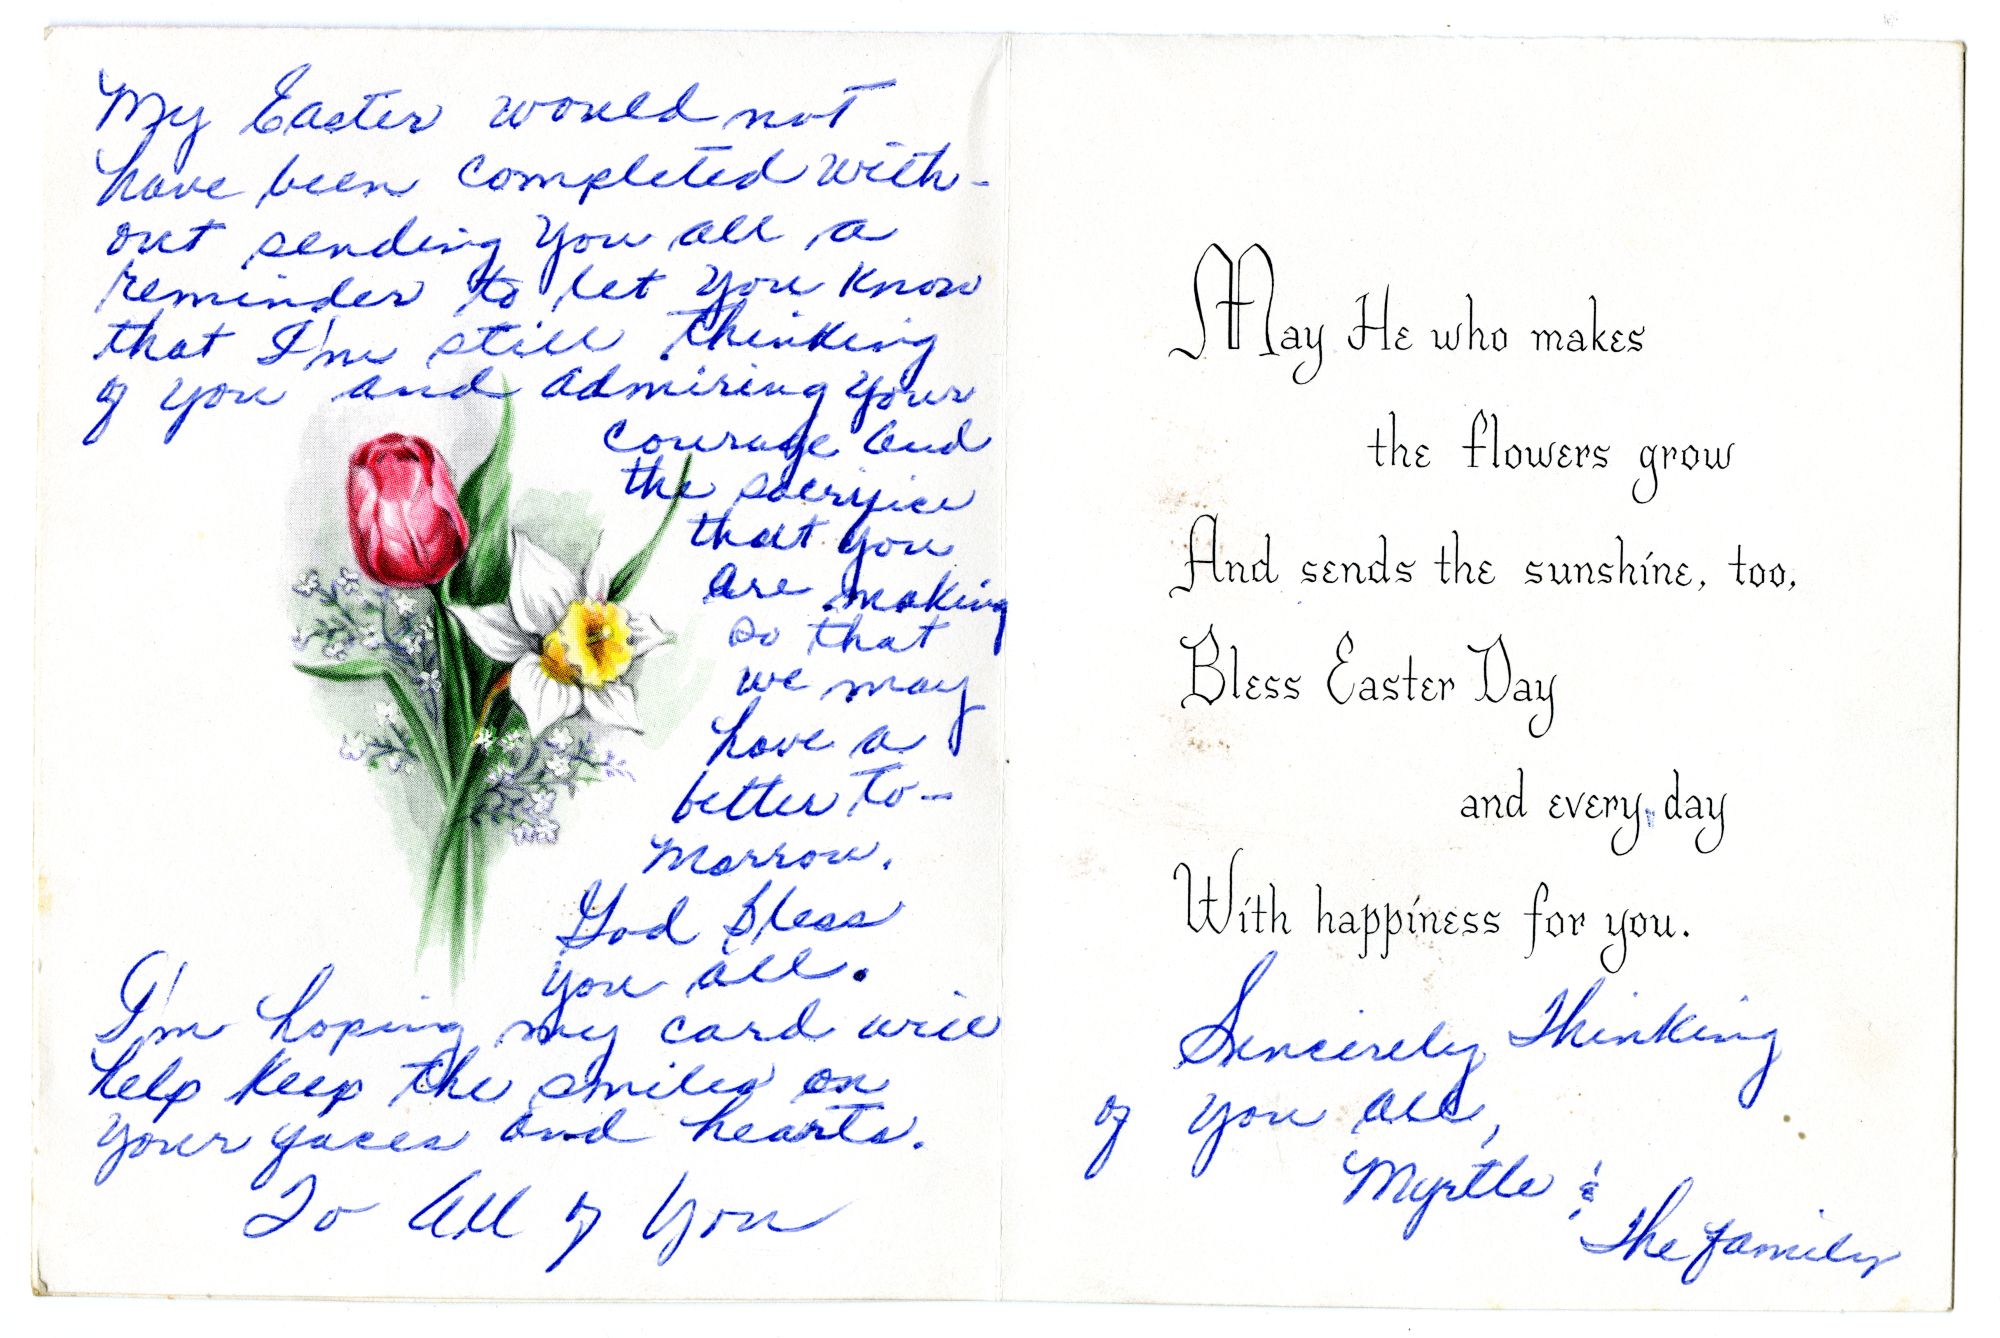 My Easter would not
have been completed with-
out sending you all a
reminder to let you know
that I'm still thinking
of you and admiring your
courage and
the sacrifice
that you
are making
so that
we may
have a
better to-
morrow.
God bless
you all.
I'm hoping my card will
help keep the smiles on
your faces and hearts.
To All of You
May He who makes
the flowers grow
And sends the sunshine, too,
Bless Easter Day
and every day
With happiness for you.
Sincerely Thinking
of you all,
Myrtle &
The family